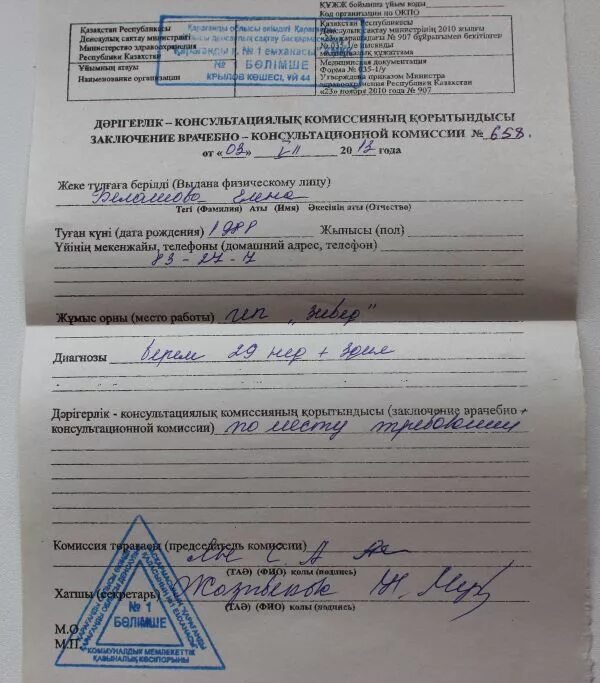 ҚҰЖЖ бойынша ұйым коды
Код организации по ОКПО
Қазақстан Республикасы
Денсаулық сақтау министрлігі
Министерство здравоохранения
Республики Казахстан
Ұйымның атауы
Наименование организации
Қарағанды облысы әкімдігі
№ 1 емханасы
№ 1 БӨЛІМШЕ
КРЫЛОВ КӨШЕСІ, ҮЙ 44
Қазақстан Республикасы
Денсаулық сақтау министрінің 2010 жылғы
«23» қарашадағы № 907 бұйрығымен бекітілген
№ 035-1/е нысанды
құжаттама
Медицинская документация
Форма № 035-1/у
Утверждена приказом Министра
здравоохранения Республики Казахстан
«23» ноября 2010 года № 907
ДӘРІГЕРЛІК – КОНСУЛЬТАЦИЯЛЫҚ КОМИССИЯНЫҢ ҚОРЫТЫНДЫСЫ
ЗАКЛЮЧЕНИЕ ВРАЧЕБНО – КОНСУЛЬТАЦИОННОЙ КОМИССИИ № 658.
от «03» VII 2013 года
Жеке тұлғаға берілді (Выдана физическому лицу)
Елена
Тегі (Фамилия) Аты (Имя) Әкесінің аты (Отчество)
Туған күні (дата рождения) 1988 Жынысы (пол)
Үйінің мекенжайы, телефоны (домашний адрес, телефон)
83-27-7
Жұмыс орны (место работы) ИП
Диагнозы берем 29 нед +
Дәрігерлік - консультациялық комиссияның қорытындысы (заключение врачебно +
консультационной комиссии) по месту требования
Комиссия төрағасы (председатель комиссии)
(ТАӘ) (ФИО) қолы (подпись)
Хатшы (секретарь)
(ТАӘ) (ФИО) қолы (подпись)
М.О.
М.П.
№ 1
БӨЛІМШЕ
КОММУНАЛДЫҚ МЕМЛЕКЕТТІК
ҚАЗЫНАЛЫҚ КӘСІПОРЫНЫ